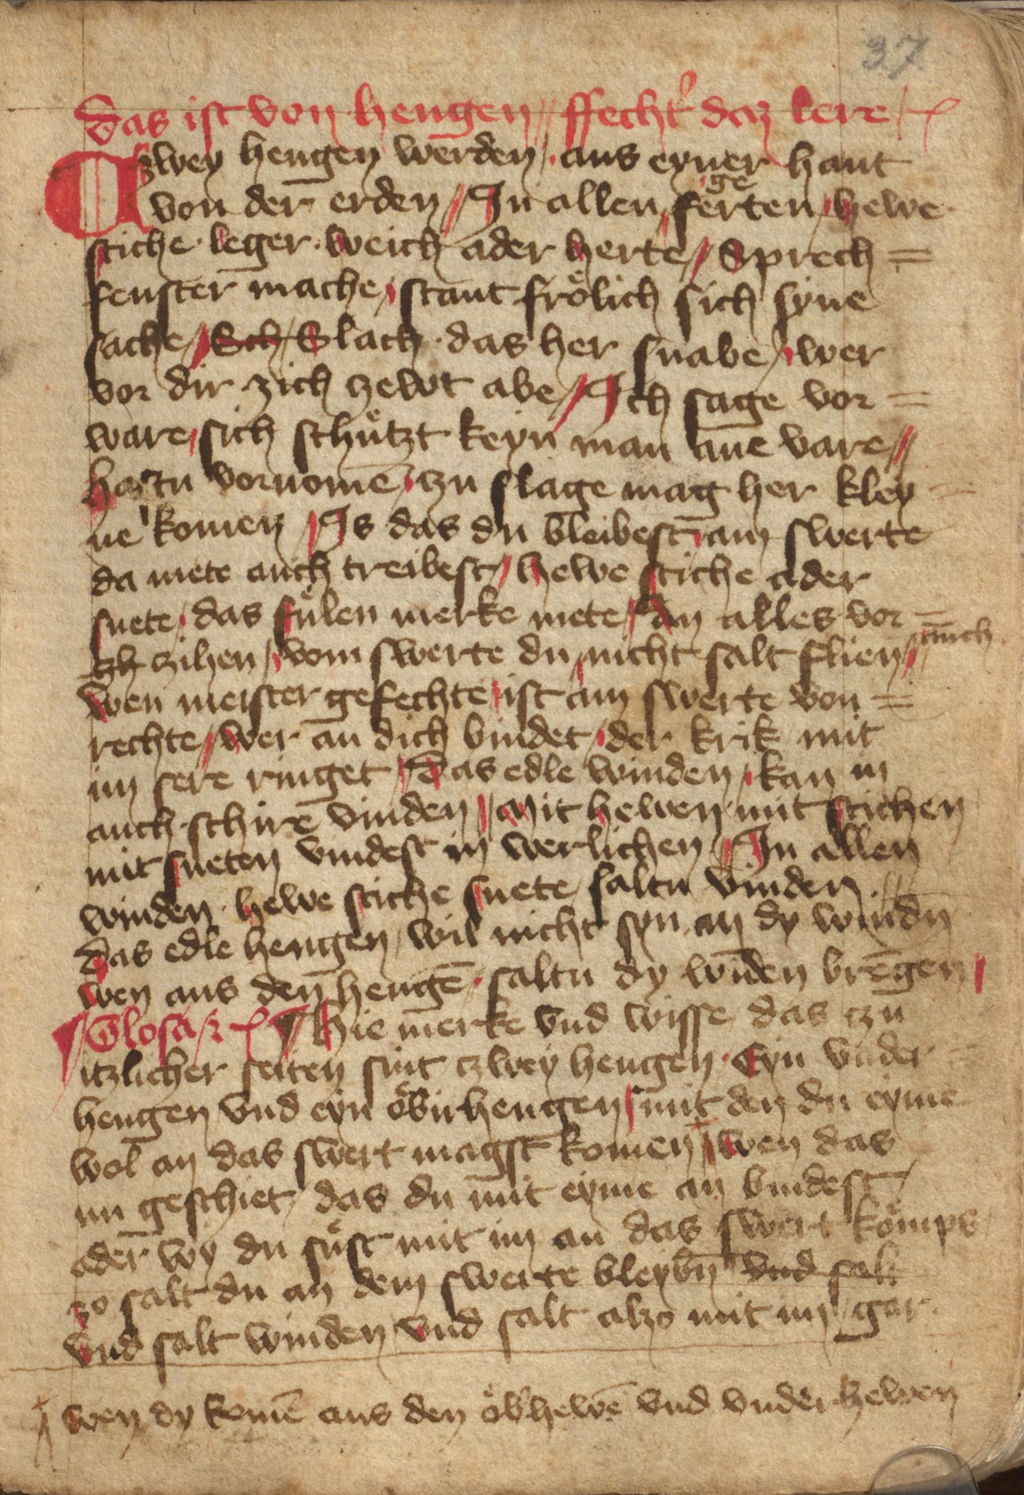 37
Das ist von hengen // ffechtʼ daz lere /
Czwey hengen werden / aus eyner hant
von der erden // In allen / gefertē / hewe
stiche · leger · weich ader herte // Sprech =
fenster mache / stant frölich sich syne
sache / Sch / Slach · das her snabe / wer
vor dir zich zewt abe // Ich sage vor =
ware / sich schützt keyn man ane vare //
hastu vornomē / zu slage mag her kley =
ne komen // Is das du bleibest / am swerte
da mete auch treibest / hewe stiche ader
snete / das fülen merke mete / An alles vor =
zh zihen / vom swerte du / nicht salt flien / auch
wen meister gefechte / ist am swerte von =
rechte // wer an dich bindet / der krik mit
im sere ringet / Das edle winden / kan in
auch schire vinden // Mit hewen mit stichen
mit sneten vindest in werlichen // In allen
winden · hewe stiche snete / saltu vinden //
das edle hengen / wil nicht syn an dy windn̄
wen aus den hengē · saltu dy wīden brengen /
Glosa / Hie merke vnd wisse das czu
itzlicher seiten sint czwey hengen · Eyn vnder
hengen vnd eyn öbirhengen / mit den du eyme
wol an das swert magst komen / wen das
im geschiet / das du mit eyme an bindest /
ader wy du süst mit im an das swert kömps
zo salt du an dem swerte bleybn̄ vnd salt
vnd salt winden vnd salt alzo mit im / gar
wen dy komē aus den öbʼhewē vnd vnderhewen